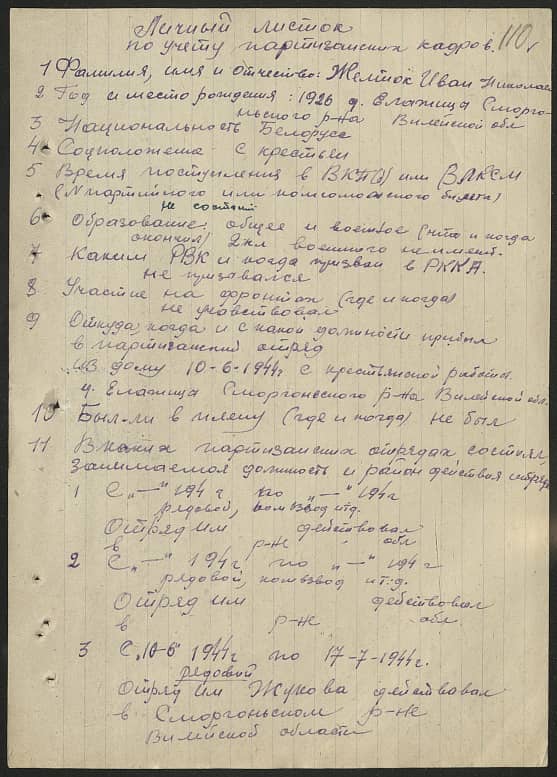 Личный листок
по учету партизанских кадров. 110
1 Фамилия, имя и отчество: Желток Иван Николае
2 Год и место рождения: 1926 д. Елажица Сморго-
ньского р-на Вилейской обл
3 Национальность Белорусс
4 Соцположение с крестьян
5 Время поступления в ВКП(б) или ВЛКСМ
(N партийного или комсомольского билета)
не состоял
6 Образование: общее и военное (что и когда
окончил) 2кл военного не имеет.
7 Каким РВК и когда призван в РККА.
не призывался
8 Участие на фронтах (где и когда)
не учавствовал
9 Откуда, когда и с какой должности прибыл
в партизанский отряд
из дому 10-6-1944г с крестьянской работы
д. Елажица Сморгонского р-на Вилейской обл.
10 Был-ли в плену (где и когда) не был
11 В каких партизанских отрядах состоял
Занимаемая должность и район действия отряда
1 С „—" 194 г по „—" 194 г
рядовой, ком взвод итд.
Отряд им действовал
в р-не обл
2 С „—" 194 г. по „—" 194 г
рядовой, комвзвод и т.д.
Отряд им действовал
в р-не обл.
3 С „10-6" 1944 г по 17-7-1944г.
рядовой
Отряд им Жукова действовал
в Сморгоньском р-не
Вилейской области